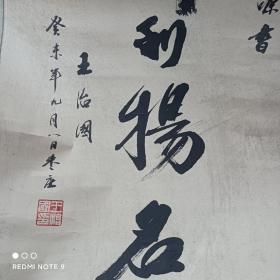 书
利揚名
王治國
癸未年九月八日
REDMI NOTE 9